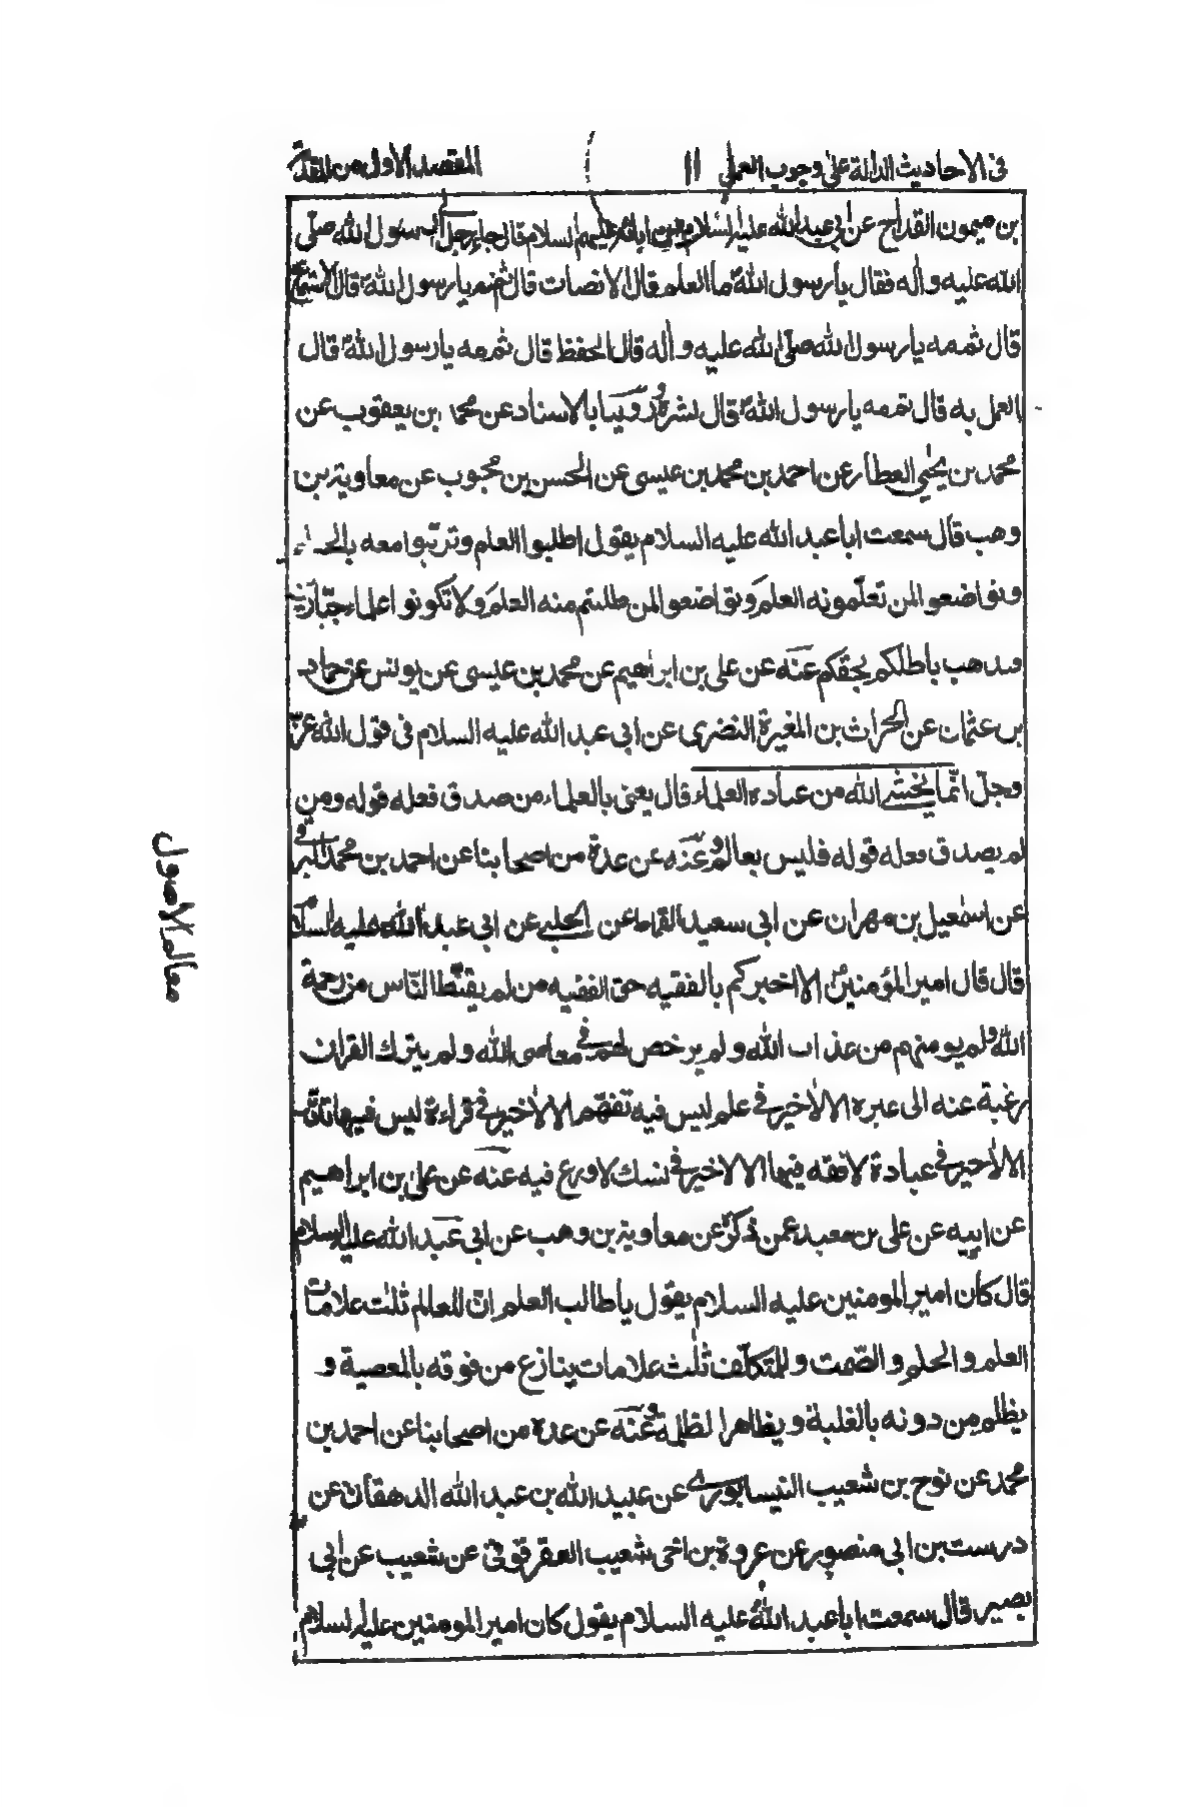 فى الاحاديث الدالة على وجوب العمل ١١ المقصد الاول من المقدمة
بن ميمون القداح عن ابى عبد الله عليه السلام عن ابائه عليهم السلام قال جاء رجل الى رسول الله صلّى
الله عليه واله فقال يا رسول الله ما العلم قال الانصات قال ثم مه يا رسول الله قال الاستماع
قال ثم مه يا رسول الله صلّى الله عليه واله قال الحفظ قال ثم مه يا رسول الله قال
العمل به قال ثم مه يا رسول الله قال نشره وروينا بالاسناد عن محمد بن يعقوب عن
محمد بن يحيى العطار عن احمد بن محمد بن عيسى عن الحسن بن محبوب عن معاوية بن
وهب قال سمعت ابا عبد الله عليه السلام يقول اطلبوا العلم وتزيّنوا معه بالحلم
وتواضعوا لمن تعلّمونه العلم وتواضعوا لمن طلبتم منه العلم ولا تكونوا علماء جبّارين
فيذهب باطلكم بحقكم عنه عن على بن ابراهيم عن محمد بن عيسى عن يونس عن حماد
بن عثمان عن الحرث بن المغيرة النضرى عن ابى عبد الله عليه السلام فى قول الله عزّ
وجلّ انّما يخشى الله من عباده العلماء قال يعنى بالعلماء من صدق فعله قوله ومن
لم يصدق فعله قوله فليس بعالم وعنه عن عدة من اصحابنا عن احمد بن محمد البرقى
عن اسمعيل بن مهران عن ابى سعيد القماط عن الحلبى عن ابى عبد الله عليه السلام
قال قال امير المؤمنين الا اخبركم بالفقيه حق الفقيه من لم يقنّط النّاس من رحمة
الله ولم يومنهم من عذاب الله ولم يرخص لهم فى معاصى الله ولم يترك القران
رغبة عنه الى غيره الا لا خير فى علم ليس فيه تفهّم الا لا خير فى قراءة ليس فيها تدبّر
الا لا خير فى عبادة لا فقه فيها الا لا خير فى نسك لا ورع فيه عنه عن على بن ابراهيم
عن ابيه عن على بن معبد عمن ذكره عن معاوية بن وهب عن ابى عبد الله عليه السلام
قال كان امير المومنين عليه السلام يقول يا طالب العلم انّ للعالم ثلث علامات
العلم والحلم والصّمت وللمتكلّف ثلث علامات ينازع من فوقه بالمعصية و
يظلم من دونه بالغلبة ويظاهر الظلمة وعنه عن عدة من اصحابنا عن احمد بن
محمد عن نوح بن شعيب النيسابورى عن عبيد الله بن عبد الله الدهقان عن
درست بن ابى منصور عن عروة بن اخى شعيب العقرقوقى عن شعيب عن ابى
بصير قال سمعت ابا عبد الله عليه السلام يقول كان امير المومنين عليه السلام
معالم الاصول